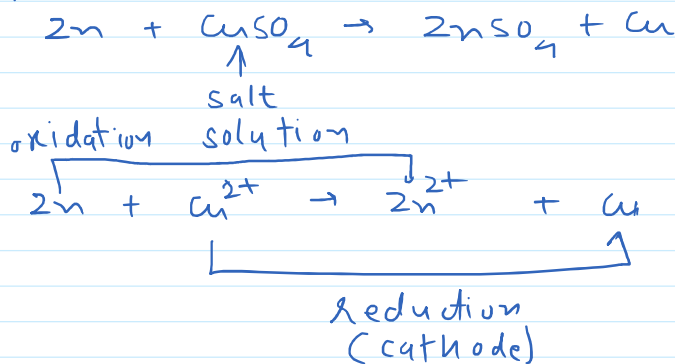 Zn + CuSO₄ → ZnSO₄ + Cu
↑
salt
oxidation solution
Zn + Cu²⁺ → Zn²⁺ + Cu
Reduction
(cathode)